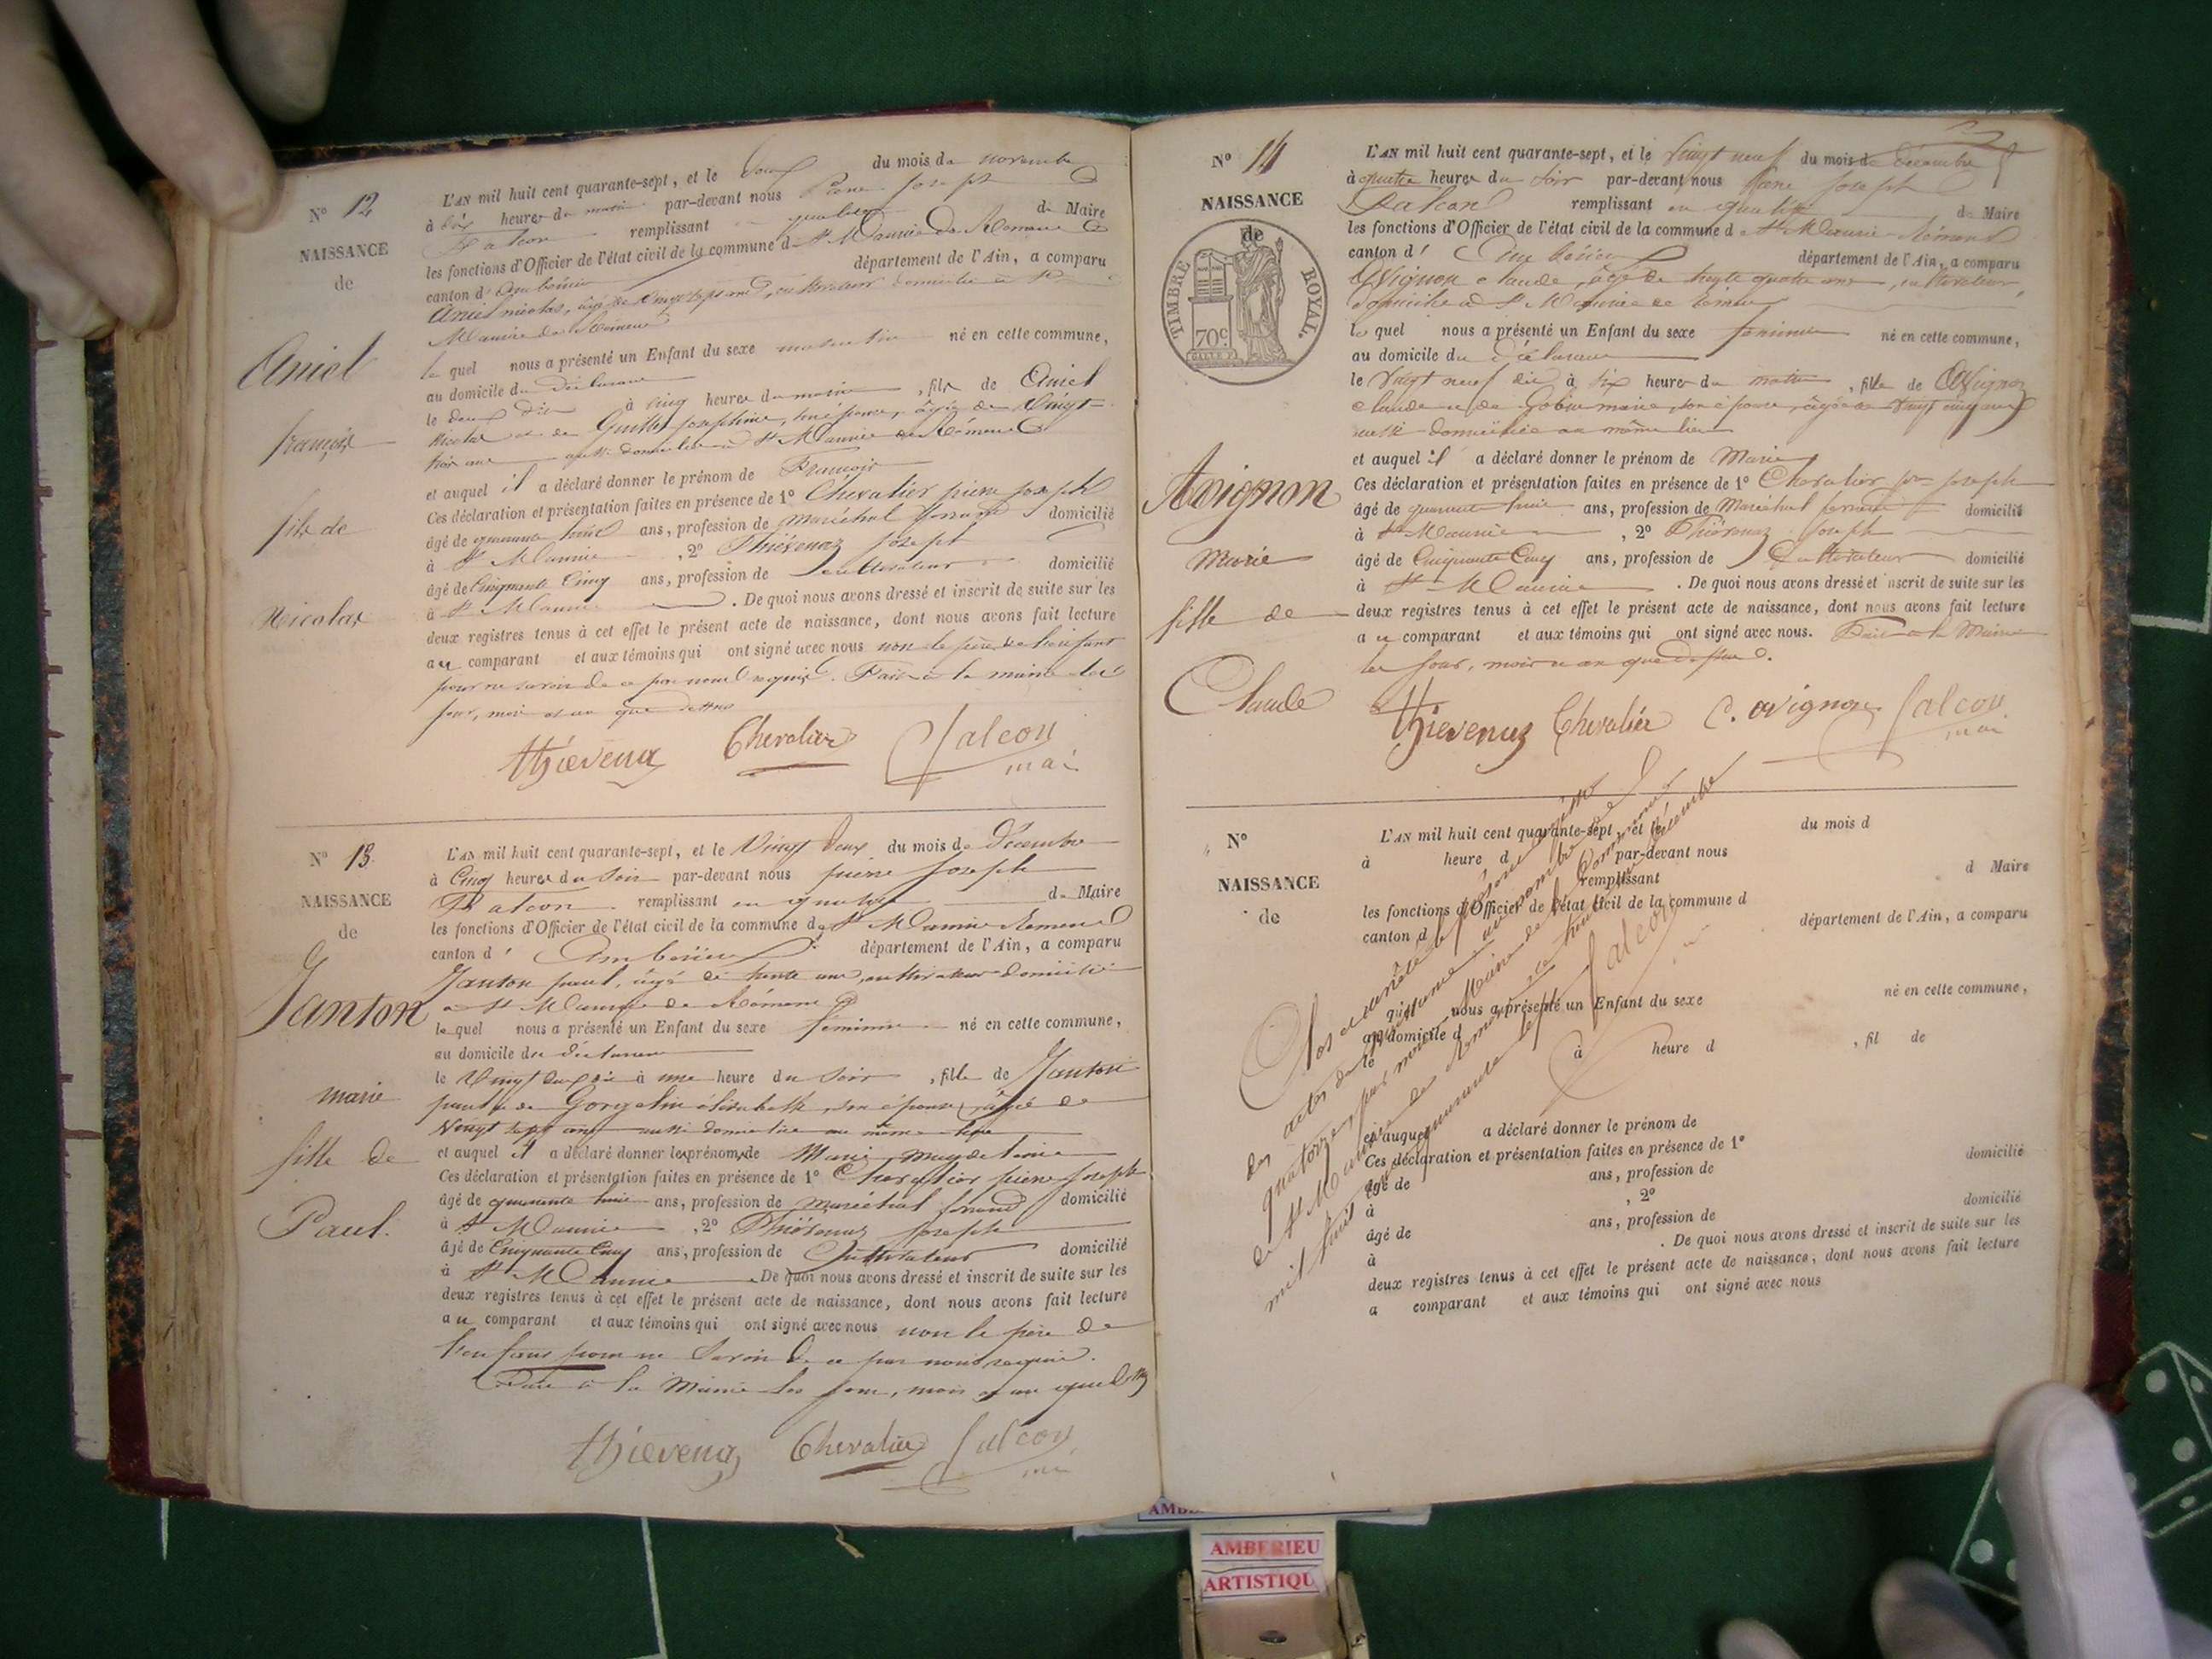 N° 12
NAISSANCE
de
Aniel
françois
fils de
Nicolas
L'AN mil huit cent quarante-sept, et le deux du mois de novembre
à dix heures du matin par-devant nous Pierre Joseph
Falcon remplissant en qualité de Maire
les fonctions d'Officier de l'état civil de la commune de St Maurice de Rémens
canton d'Ambérieu département de l'Ain, a comparu
Aniel nicolas, âgé de vingt sept ans, cultivateur domicilié à St
Maurice de Rémens
lequel nous a présenté un Enfant du sexe masculin né en cette commune,
au domicile du déclarant
le deux dit à cinq heures du matin, fils de Aniel
Nicolas et de joséphine, son épouse, âgée de vingt
trois ans aussi domiciliée à St Maurice de Rémens
et auquel il a déclaré donner le prénom de François
Ces déclaration et présentation faites en présence de 1° Chevalier pierre joseph
âgé de quarante huit ans, profession de maréchal ferrant domicilié
à St Maurice, 2° Thiévenaz Joseph
âgé de Cinquante Cinq ans, profession de cultivateur domicilié
à St Maurice. De quoi nous avons dressé et inscrit de suite sur les
deux registres tenus à cet effet le présent acte de naissance, dont nous avons fait lecture
au comparant et aux témoins qui ont signé avec nous non le père de l'enfant
pour ne savoir de ce par nous requis. Fait à la mairie les
jour, mois et an que dessus
thievenaz Chevalier falcon
mai
N° 13
NAISSANCE
de
Janton
marie
fille de
Paul.
L'AN mil huit cent quarante-sept, et le Vingt deux du mois de Décembre
à Cinq heures du soir par-devant nous pierre Joseph
Falcon remplissant en qualité de Maire
les fonctions d'Officier de l'état civil de la commune de St Maurice Remens
canton d'Ambérieu département de l'Ain, a comparu
Janton paul, âgé de trente ans, cultivateur domicilié
à St Maurice de Rémens
lequel nous a présenté un Enfant du sexe féminin né en cette commune,
au domicile du déclarant
le Vingt deux dit à une heure du soir, fille de Janton
paul et de élisabeth, son épouse, âgée de
Vingt sept ans aussi domiciliée au même lieu
et auquel il a déclaré donner les prénoms de Marie magdeleine
Ces déclaration et présentation faites en présence de 1° Chevalier pierre joseph
âgé de quarante huit ans, profession de maréchal ferrand domicilié
à St Maurice, 2° Thiévenaz joseph
âgé de Cinquante Cinq ans, profession de Cultivateur domicilié
à St Maurice. De quoi nous avons dressé et inscrit de suite sur les
deux registres tenus à cet effet le présent acte de naissance, dont nous avons fait lecture
au comparant et aux témoins qui ont signé avec nous non le père de
l'enfant pour ne savoir de ce par nous requis.
Fait à la Mairie les jour, mois et an que dessus
thievenaz Chevalier falcon
N° 14
NAISSANCE
de
TIMBRE ROYAL.
70c
Avignon
Marie
fille de
Claude
L'AN mil huit cent quarante-sept, et le Vingt neuf du mois de décembre
à quatre heures du soir par-devant nous pierre joseph
Falcon remplissant en qualité de Maire
les fonctions d'Officier de l'état civil de la commune de St Maurice Rémens
canton d'Ambérieu département de l'Ain, a comparu
Avignon claude, âgé de trente quatre ans, cultivateur,
domicilié à St Maurice de Rémens
lequel nous a présenté un Enfant du sexe féminin né en cette commune,
au domicile du déclarant
le Vingt neuf dit à six heures du matin, fille de Avignon
claude et de marie, son épouse, âgée de vingt cinq ans
aussi domiciliée au même lieu
et auquel il a déclaré donner le prénom de Marie
Ces déclaration et présentation faites en présence de 1° Chevalier pre joseph
âgé de quarante huit ans, profession de Maréchal ferrand domicilié
à St Maurice, 2° Thiévenaz Joseph
âgé de Cinquante Cinq ans, profession de Cultivateur domicilié
à St Maurice. De quoi nous avons dressé et inscrit de suite sur les
deux registres tenus à cet effet le présent acte de naissance, dont nous avons fait lecture
au comparant et aux témoins qui ont signé avec nous. Fait à la Mairie
les jour, mois et an que dessus.
thievenaz Chevalier C. avignon falcon
mai
N°
NAISSANCE
de
L'AN mil huit cent quarante-sept, et le du mois d
à heure d par-devant nous
remplissant d Maire
les fonctions d'Officier de l'état civil de la commune d
canton d département de l'Ain, a comparu
quel nous a présenté un Enfant du sexe né en cette commune,
au domicile d
le à heure d , fil de
et auquel a déclaré donner le prénom de
Ces déclaration et présentation faites en présence de 1°
âgé de ans, profession de domicilié
à , 2°
âgé de ans, profession de domicilié
à . De quoi nous avons dressé et inscrit de suite sur les
deux registres tenus à cet effet le présent acte de naissance, dont nous avons fait lecture
a comparant et aux témoins qui ont signé avec nous
Clos et arrêté le présent registre
des actes de naissance au nombre de
quatorze, par nous Maire de la Commune
de St Maurice de Rémens le trente un décembre
mil huit cent quarante sept
falcon
AMBERIEU
ARTISTIQU